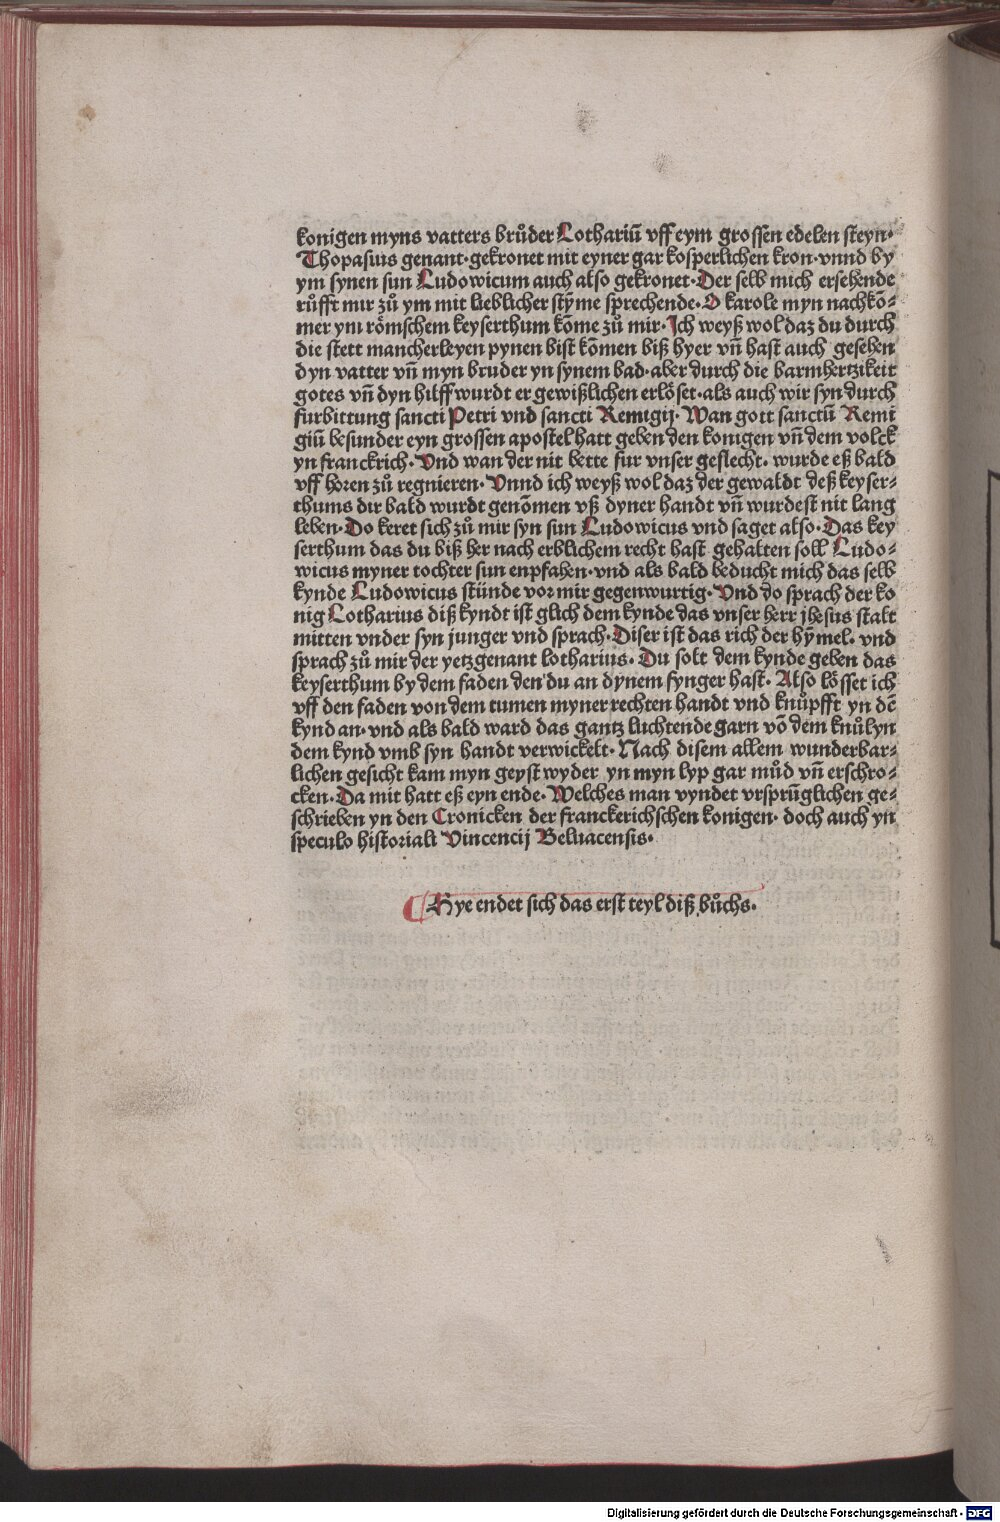 konigen myns vatters brůder Lothariū vff eym grossen edelen steyn·
Thopasius genant·gekronet mit eyner gar kosperlichen kron·vnnd by
ym synen sun Ludowicum auch also gekronet·Der selb mich ersehende
růfft mir zů ym mit lieblicher stȳme sprechende·O karole myn nachkō-
mer ym römschem keyserthum kōme zů mir·Ich weyß wol daz du durch
die stett mancherleyen pynen bist kōmen biß hyer vñ hast auch gesehen
dyn vatter vñ myn bruder yn synem bad·aber durch die barmhertzikeit
gotes vñ dyn hilff wurdt er gewißlichen erlöset·als auch wir syn durch
furbittung sancti Petri vnd sancti Remigij·Wan gott sanctū Remi
giū besunder eyn grossen apostel hatt geben den konigen vñ dem volck
yn franckrich·Vnd wan der nit bette fur vnser geslecht·wurde eß bald
vff horen zů regnieren·Vnnd ich weyß wol daz der gewaldt deß keyser-
thums dir bald wurdt genōmen vß dyner handt vñ wurdest nit lang
leben·Do keret sich zů mir syn sun Ludowicus vnd saget also·Das key
serthum das du biß her nach erblichem recht hast gehalten soll Ludo-
wicus myner tochter sun enpfahen·vnd als bald beducht mich das selb
kynde Ludowicus stünde vor mir gegenwurtig·Vnd do sprach der ko
nig Lotharius diß kyndt ist glich dem kynde das vnser herr jhesus stalt
mitten vnder syn junger vnd sprach·Diser ist das rich der hȳmel·vnd
sprach zů mir der yetzgenant lotharius·Du solt dem kynde geben das
keyserthum by dem faden den du an dynem fynger hast·Also lösset ich
vff den faden von dem tumen myner rechten handt vnd knůpfft yn dē
kynd an·vnd als bald ward das gantz luchtende garn vō dem knůlyn
dem kynd vmb syn handt verwickelt·Nach disem allem wunderbar-
lichen gesicht kam myn geyst wyder yn myn lyp gar můd vñ erschro-
cken·Da mit hatt eß eyn ende·Welches man vyndet vrsprūglichen ge-
schrieben yn den Cronicken der franckerichschen konigen·doch auch yn
speculo historiali Vincencij Beluacensis·
Hye endet sich das erst teyl diß bůchs·
Digitalisierung gefördert durch die Deutsche Forschungsgemeinschaft - DFG